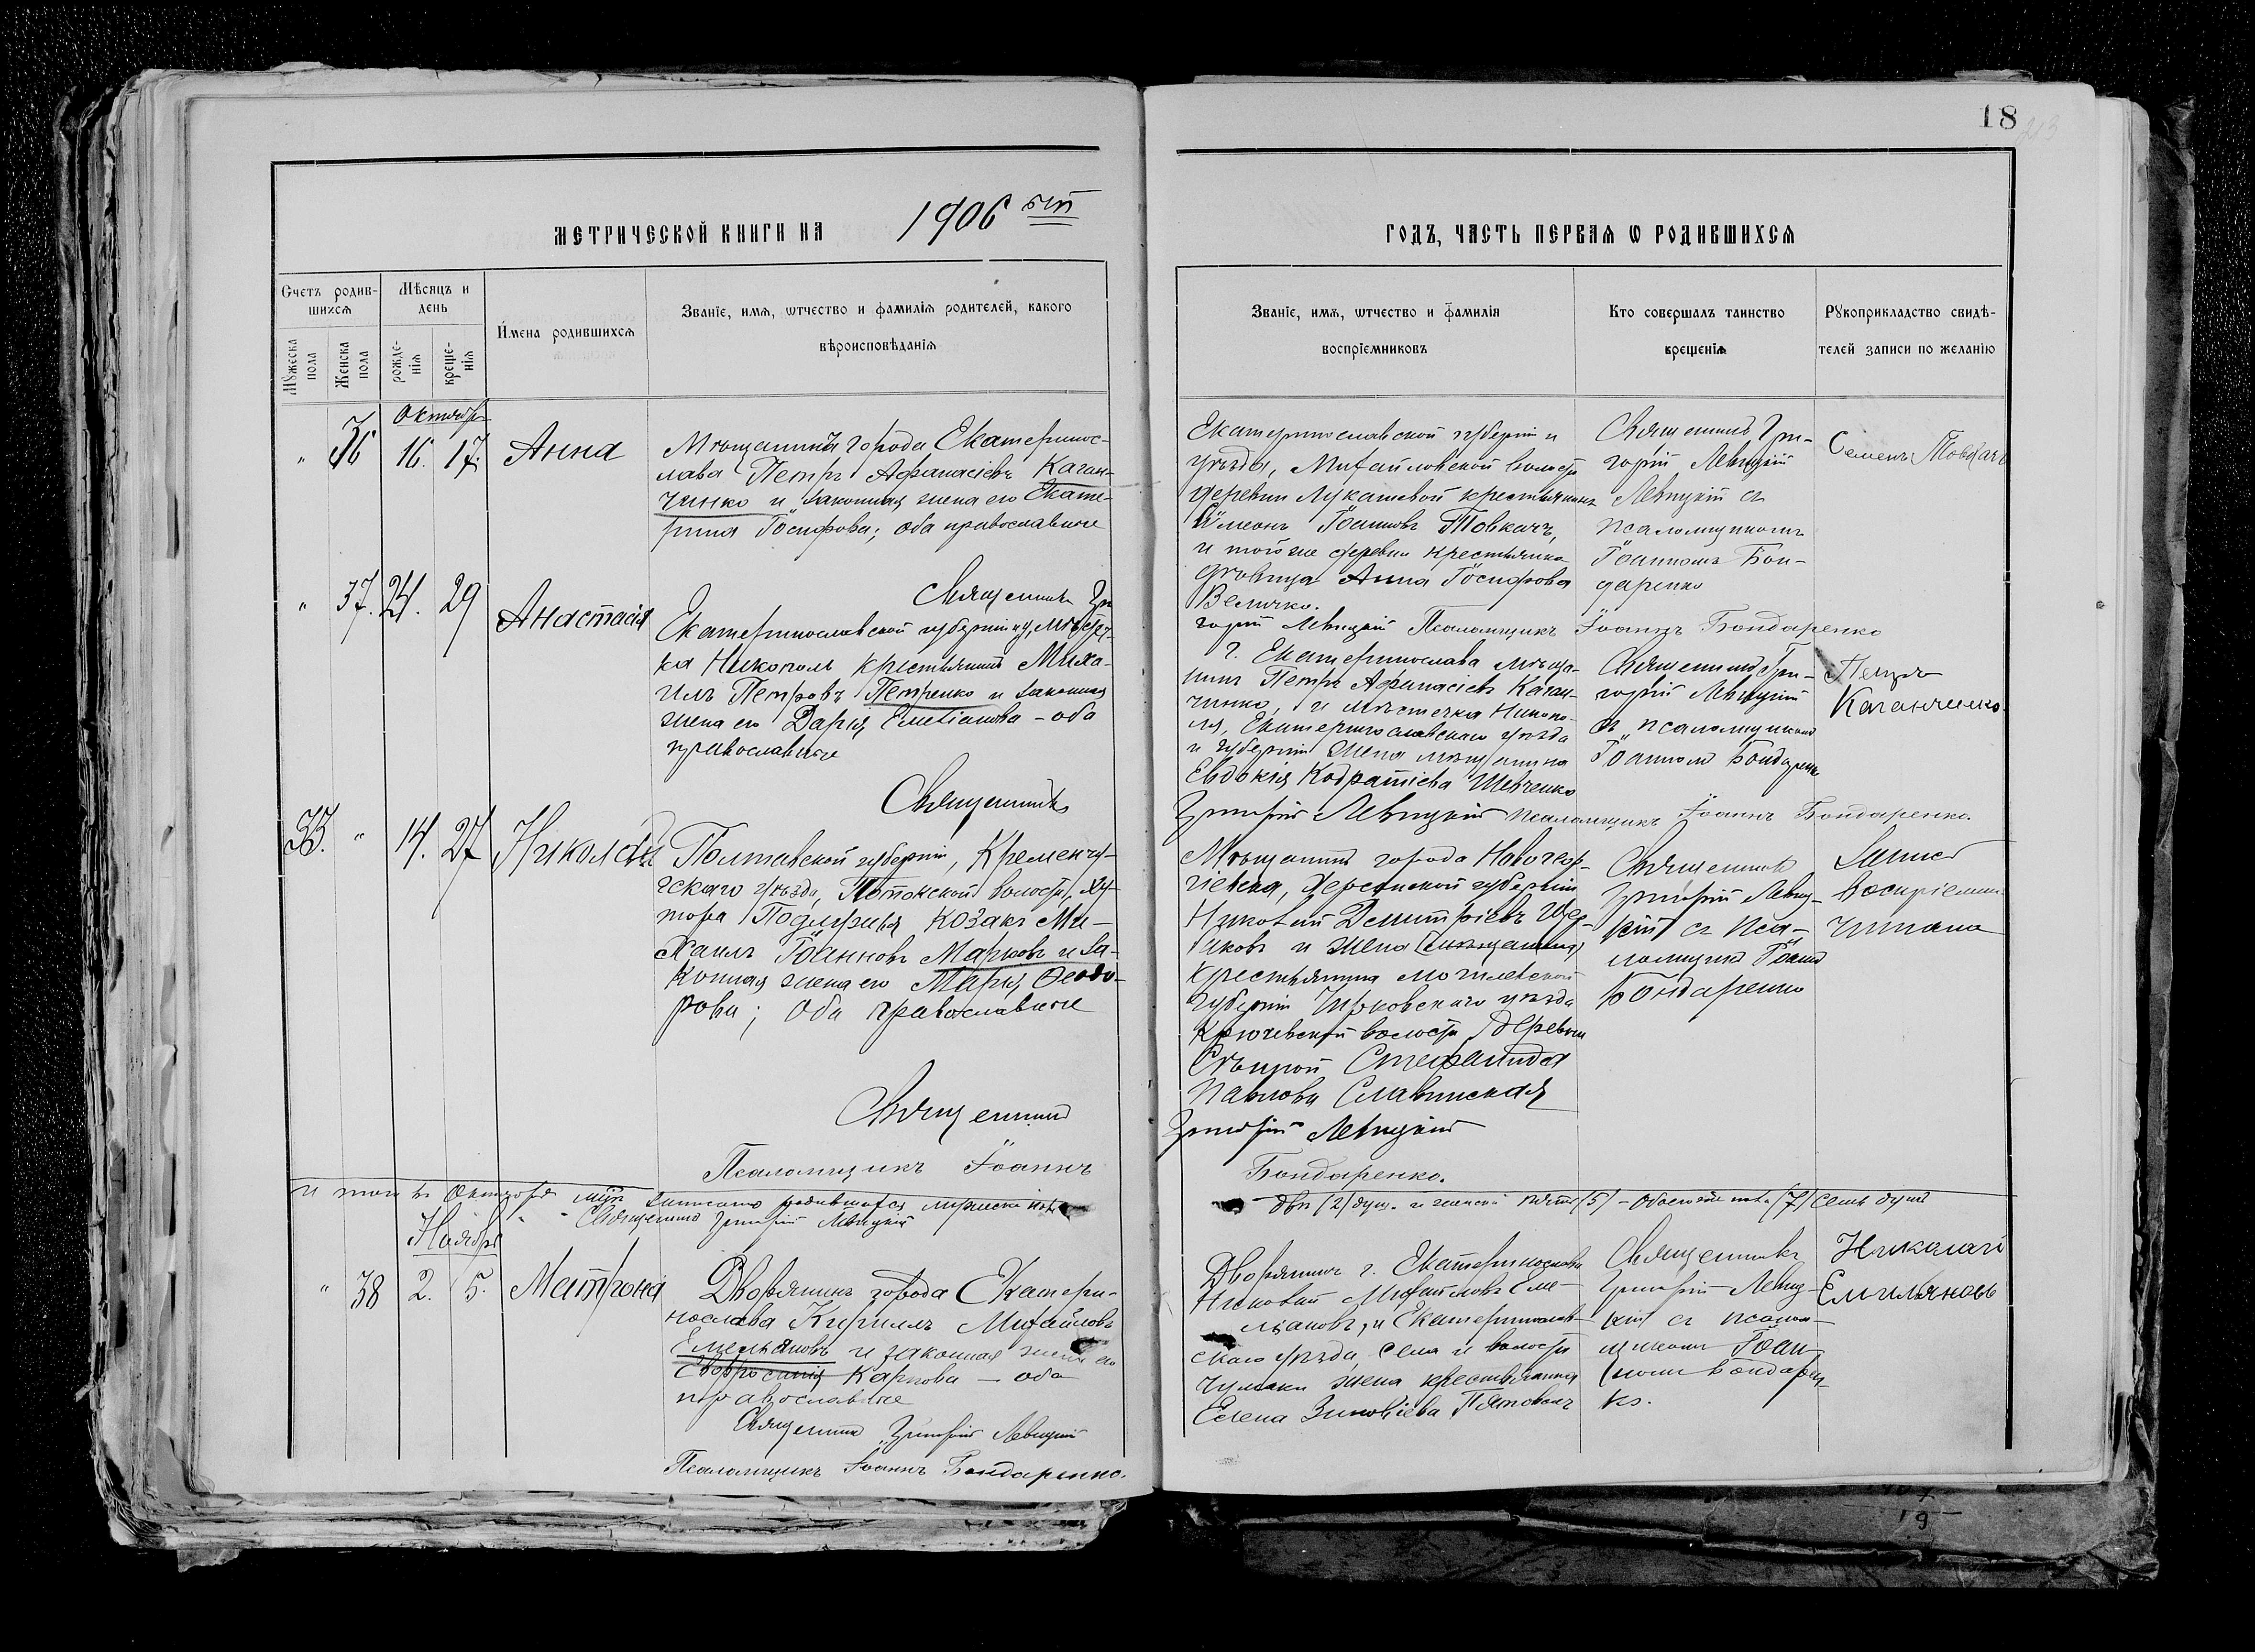 18
213
МЕТРИЧЕСКОЙ КНИГИ НА 1906 ой
ГОДЪ, ЧАСТЬ ПЕРВАЯ Ѡ РОДИВШИХСЯ
Счетъ родив-
шихся
Мѣсяцъ и
день
Мꙋжеска
пола
Женска
пола
рожде-
нія
креще-
нія
Имена родившихся
Званіе, имя, ѿтчество и фамилія родителей, какого
вѣроисповѣданія
Званіе, имя, ѿтчество и фамилія
воспріемниковъ
Кто совершалъ таинство
крещенія
Рꙋкоприкладство свидѣ-
телей записи по желанію
Октябрь
" 36 16. 17. Анна
Мѣщанинъ города Екатеринос-
лава Петръ Афанасіевъ Каган-
чинко и законная жена его Екате-
рина Іосифова; оба православные
Священникъ Гри
Екатеринославской губерніи и
уѣзда, Михайловской волости
деревни Лукашевой крестьянинъ
Сѵмеонъ Іоанновъ Товкачъ,
и той же деревни крестьянка
дѣвица Анна Іосифова
Величко.
горій Левицкій Псаломщикъ Іоаннъ Бондаренко
Священникъ Гри-
горій Левицкій
Левицкій съ
псаломщикомъ
Іоанномъ Бон-
даренко
Семенъ Товкачъ
" 37. 24. 29 Анастасія
Екатеринославской губерніи у, мѣстеч-
ка Никополь крестьянинъ Миха-
илъ Петровъ Петренко и законная
жена его Дарія Емеліанова - оба
православные
Священникъ
г. Екатеринослава мѣща-
нинъ Петръ Афанасіевъ Каган-
чинко, и мѣстечка Никопо-
ля, Екатеринославскаго уѣзда
и губерніи жена мѣщанина
Евдокія Кодратіева Шевченко
Григорій Левицкій псаломщикъ Іоаннъ Бондаренко.
Священникъ Гри-
горій Левицкій
съ псаломщикомъ
Іоанномъ Бондаренко
Петръ
Каганчинко.
35. " 14. 27 Николай
Полтавской губерніи, Кременчу-
гскаго уѣзда, Потокской волости, ху-
тора Козакъ Ми-
хаилъ Іоанновъ Марковъ и за-
конная жена его Марія Ѳеодо-
рова; Оба православные
Священникъ
Псаломщикъ Іоаннъ
Мѣщанинъ города Новогеор-
гіевска, Херсонской губерніи
Николай Димитріевъ
и жена
крестьянина могилевской
губерніи уѣзда
волости деревни
Стефанида
Павлова Славинская
Григорій Левицкій
Бондаренко.
Священникъ
Григорій Левиц-
кій съ Пса-
ломщик. Іоанн
Бондаренко
Записъ
воспріемни
читала
Итого въ Октябрѣ м-цѣ записано родившихся мужеска пола
два (2) душ. и женска пять (5) - обоего пола (7) семь душъ
Священникъ Григорій Левицкій
Ноябрь
" 38 2. 5. Матрона
Дворянинъ города Екатери-
нослава Кириллъ Михайловъ
Емельяновъ и законная жена его
Евфросинія Карпова - оба
православные
Священникъ Григорій Левицкій
Псаломщикъ Іоаннъ Бондаренко.
Дворянинъ г. Екатеринослава
Николай Михайловъ Еме-
льяновъ, и Екатеринослав-
скаго уѣзда, села и волости
Чумаки жена крестьянина
Елена Зиновіева
Священникъ
Григорій Левиц-
кій съ псалом-
щикомъ Іоан-
номъ Бондарен-
ко.
Николай
Емильяновъ
19